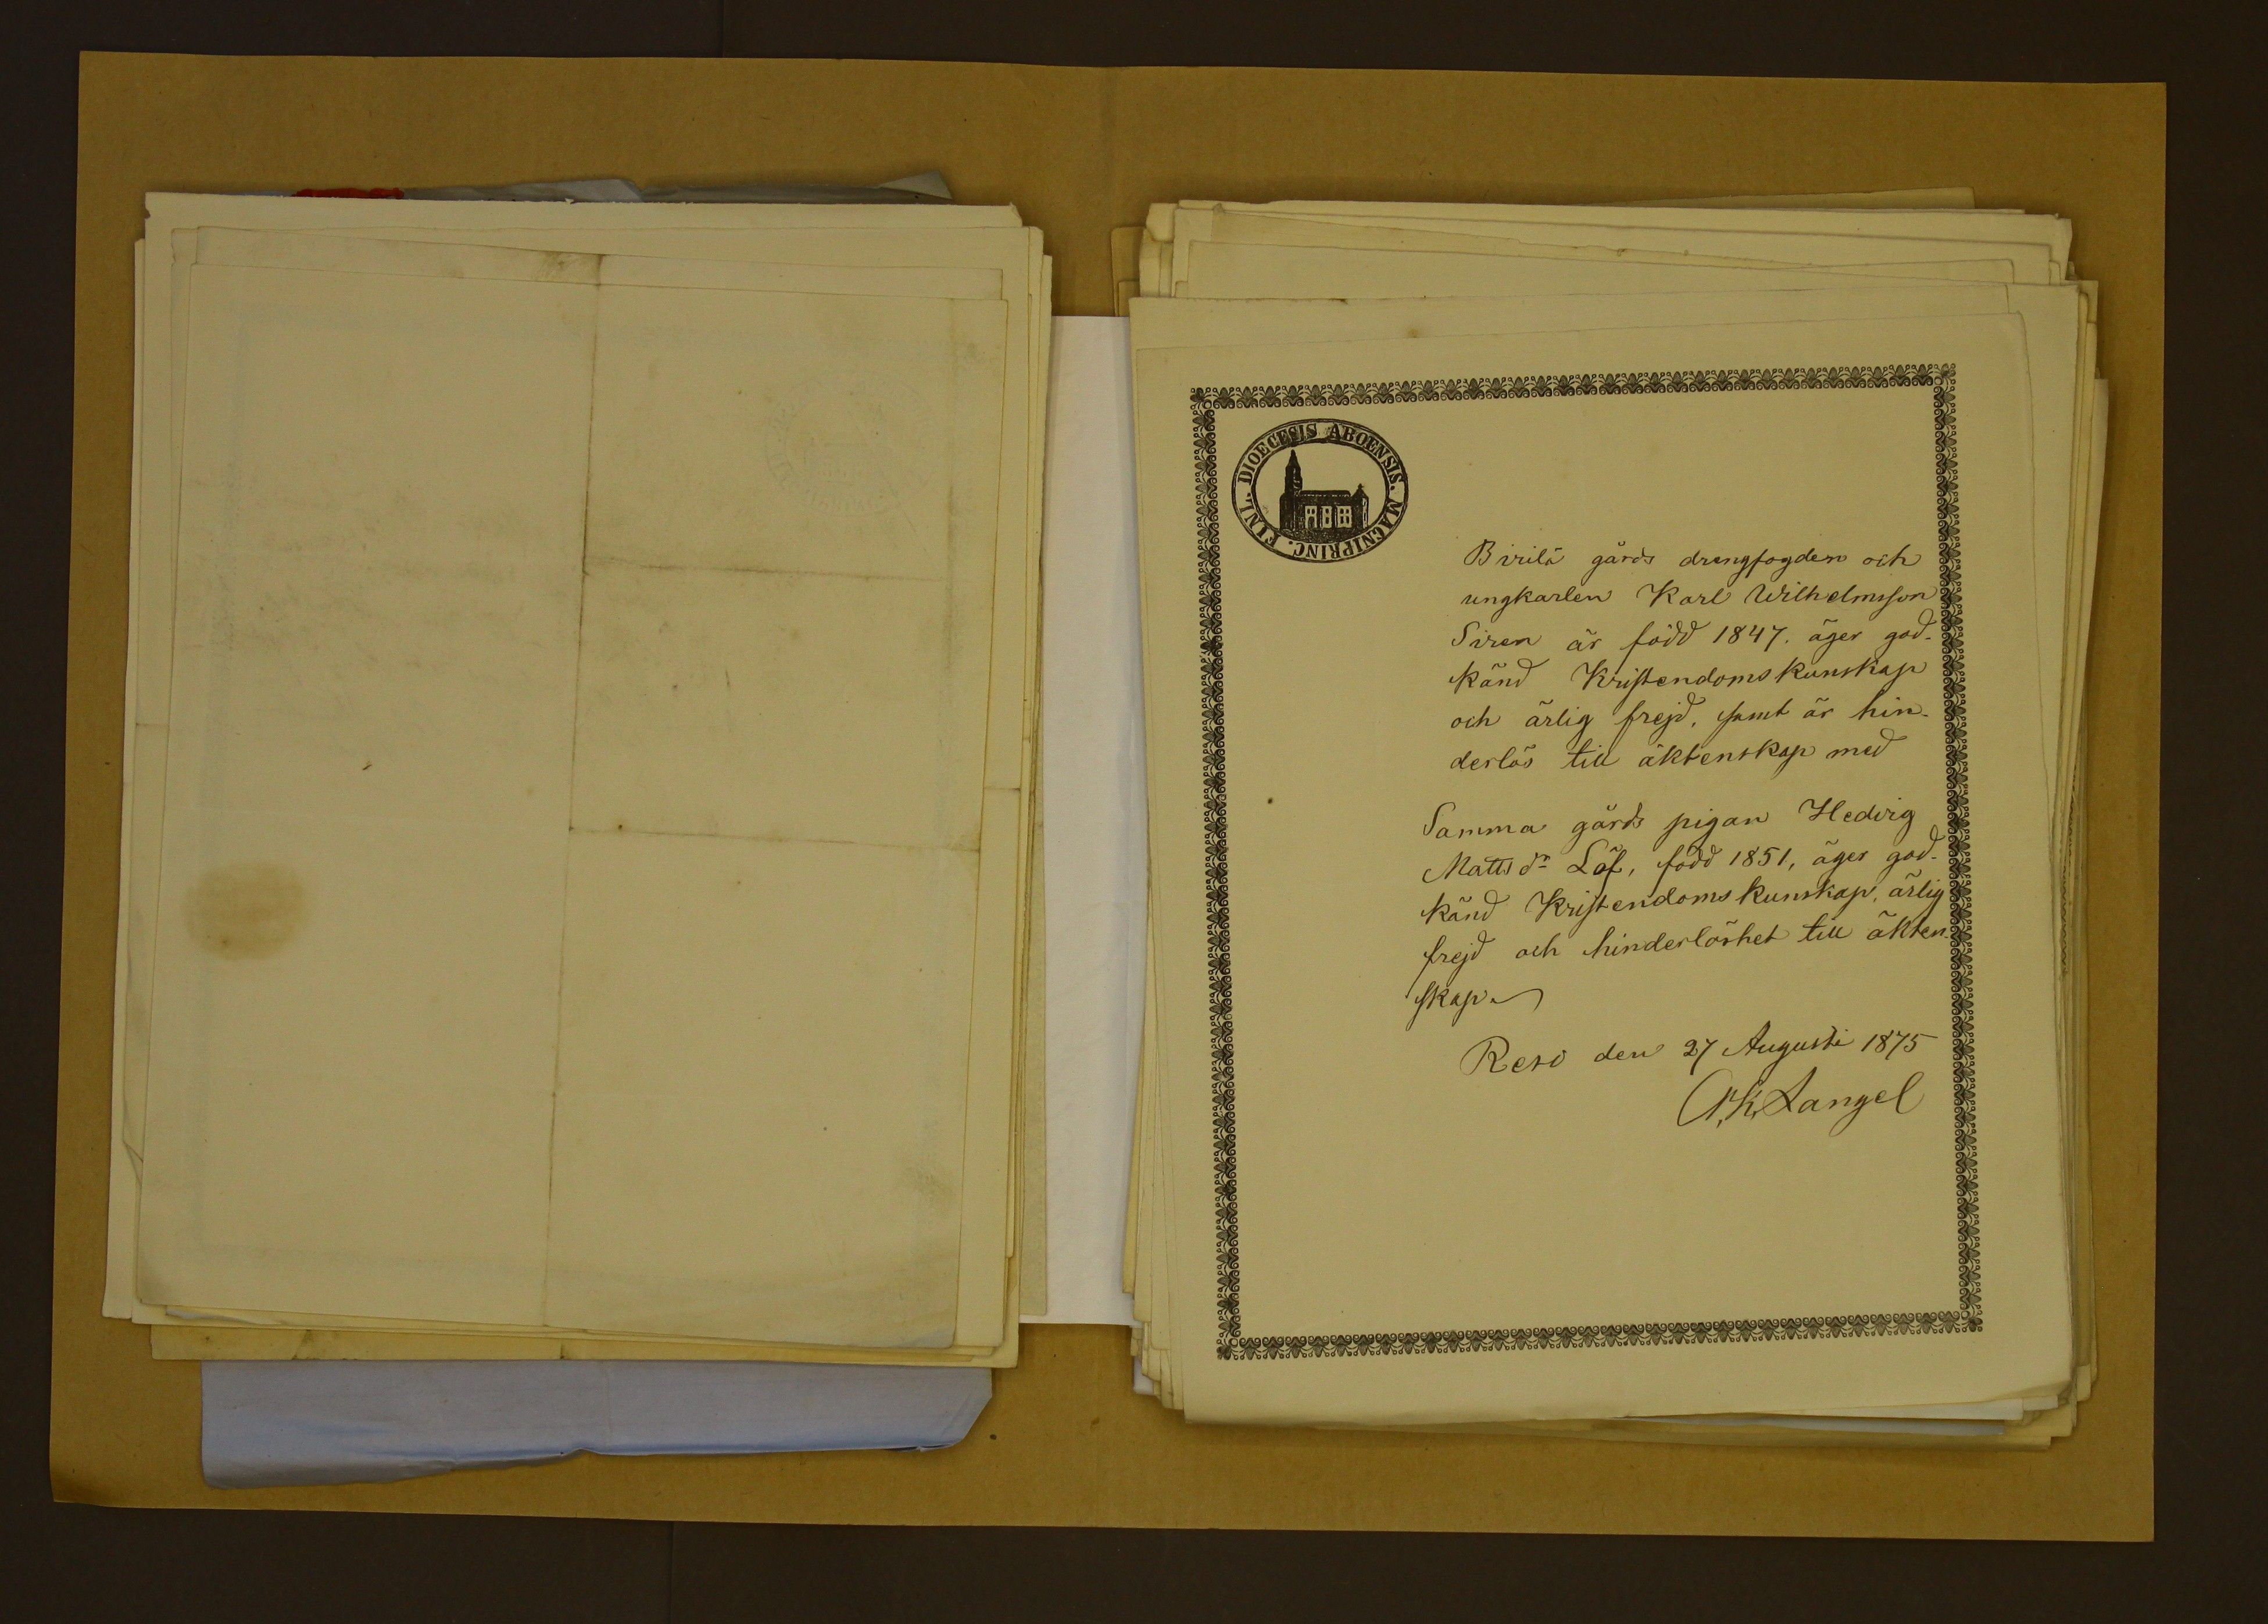 DIOECESIS ABOENSIS. MAGNIPRINC. FINL.
Birilä gårds drengfogden och
ungkarlen Karl Wilhelmsson
Siren är född 1847. äger god-
känd Kristendomskunskap
och ärlig frejd, samt är hin-
derlös till äktenskap med
Samma gårds pigan Hedvig
Mattsdr Löf, född 1851, äger god-
känd Kristendomskunskap, ärlig
frejd och hinderlöshet till äkten-
skap
Reso den 27 Augusti 1875
A. K. Langel